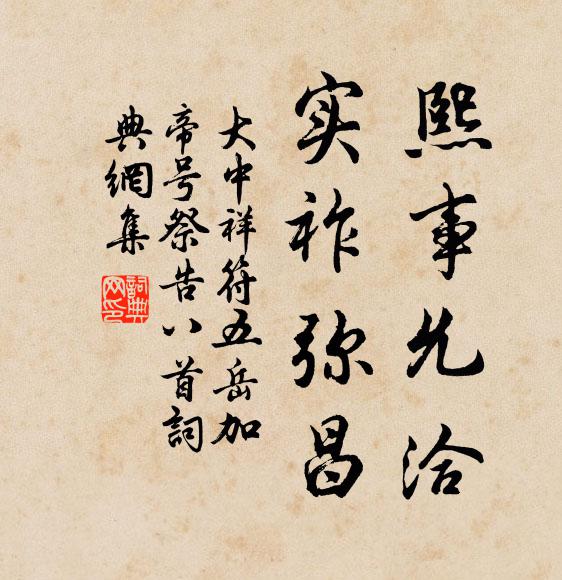 熙事允洽
实祚弥昌
大中祥符五岳加
帝号祭告八首詞
典網集
詞典
网印